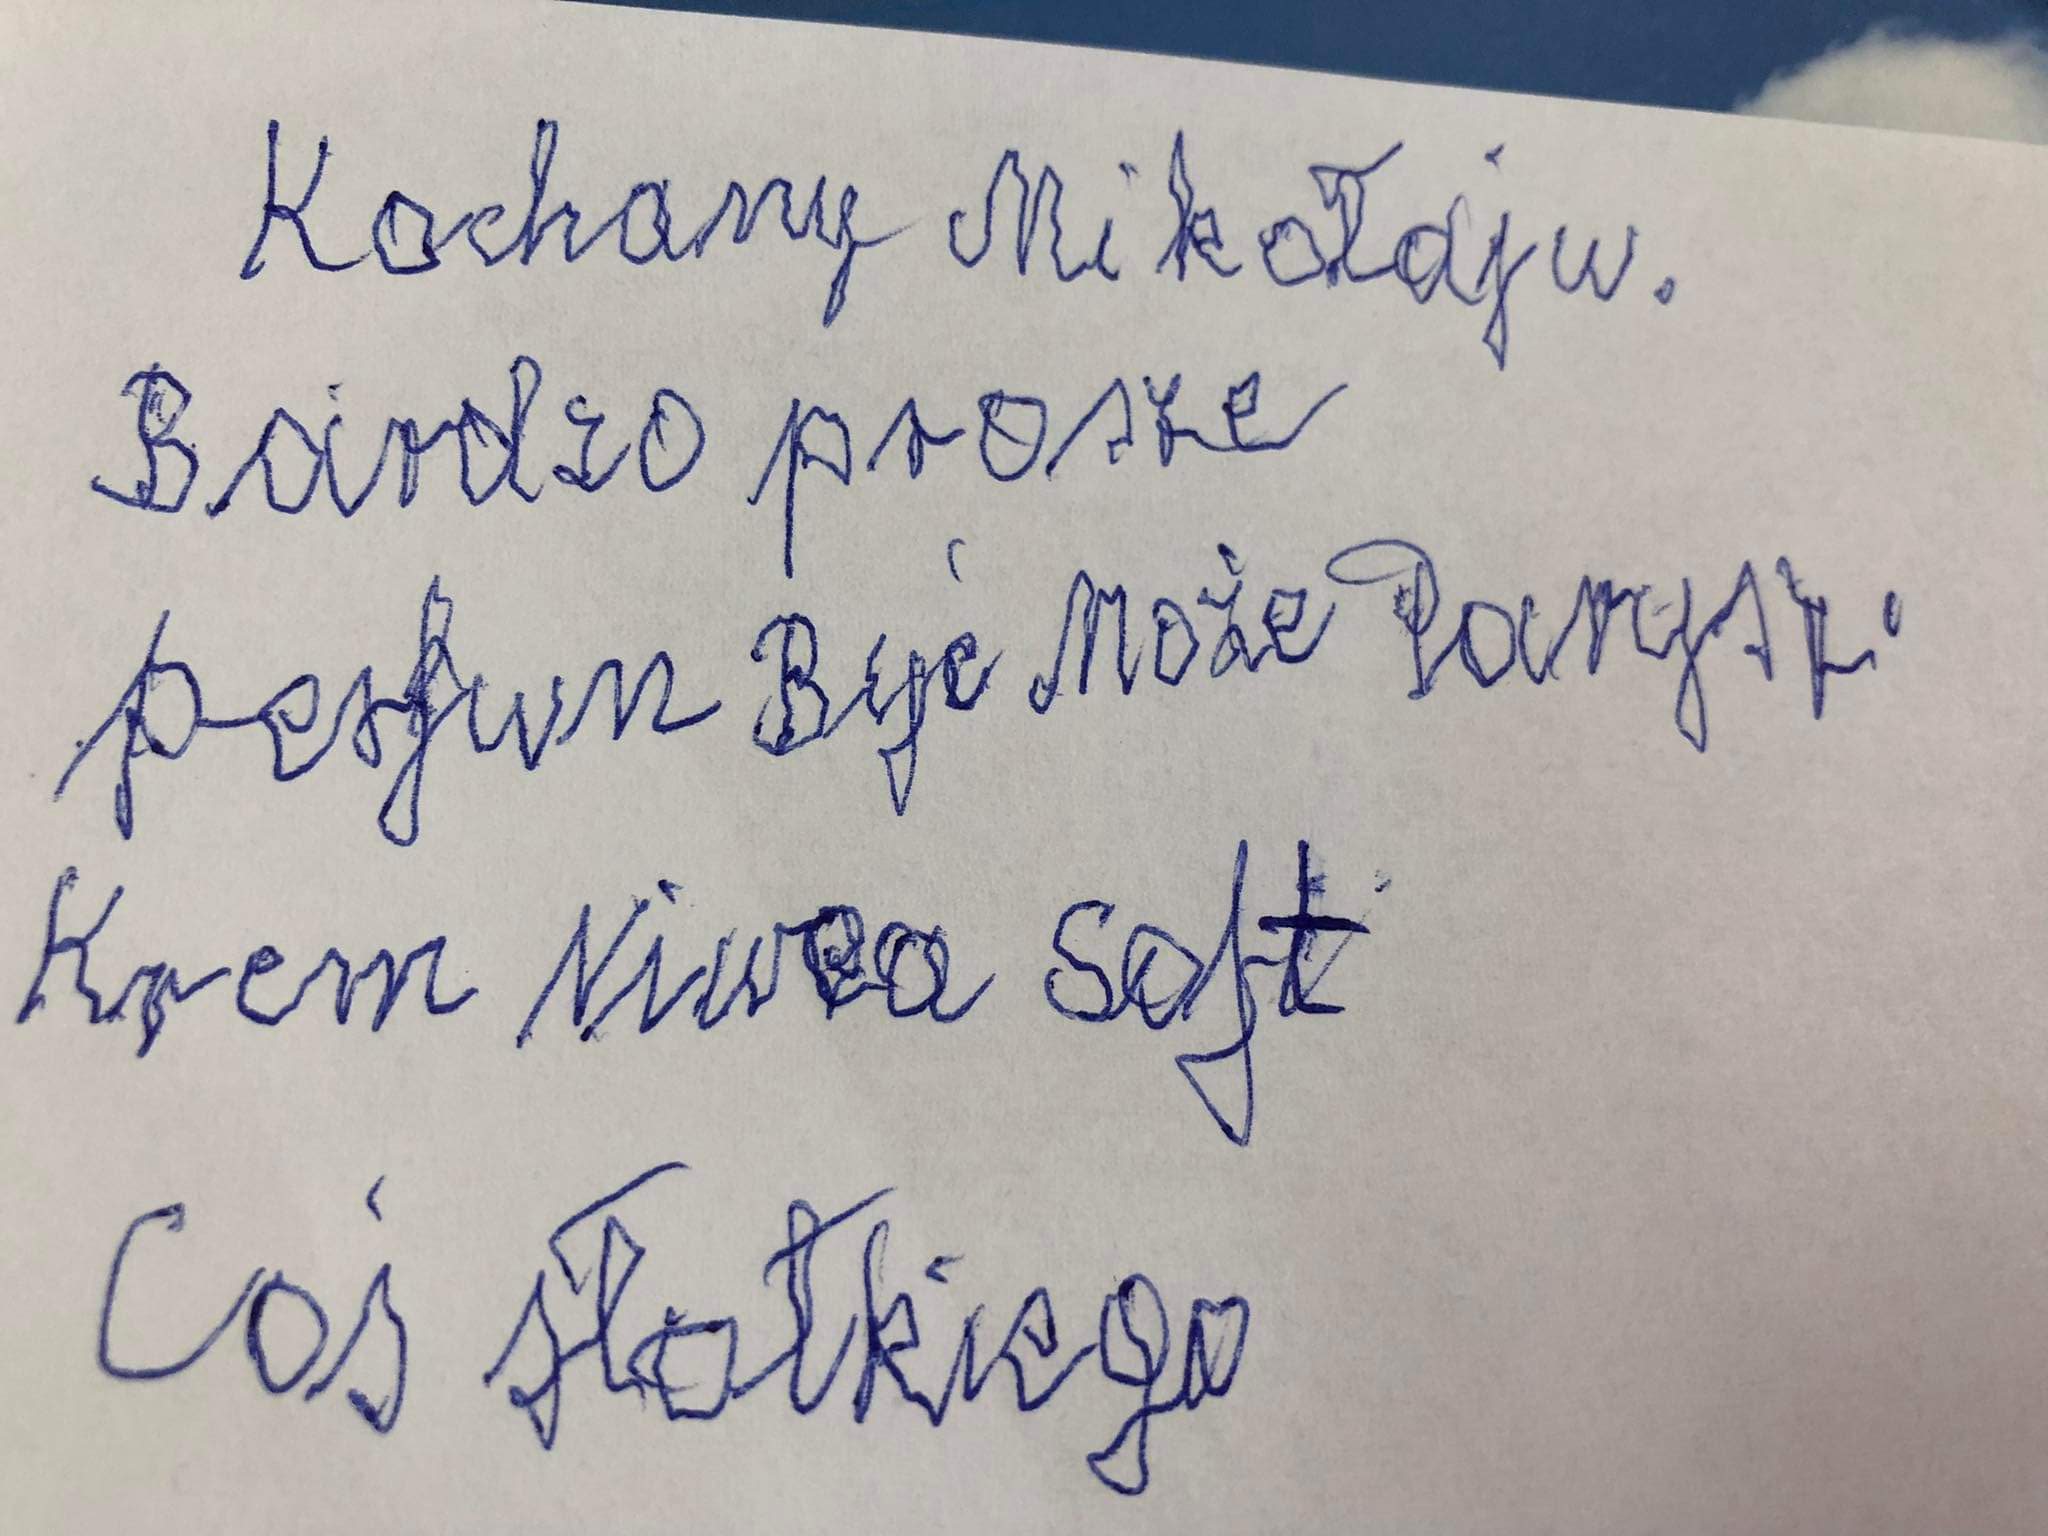 Kochany Mikołaju.
Bardzo prosze
perfum Być Może Paryż.
Krem Nivea Soft
Coś słotkiego